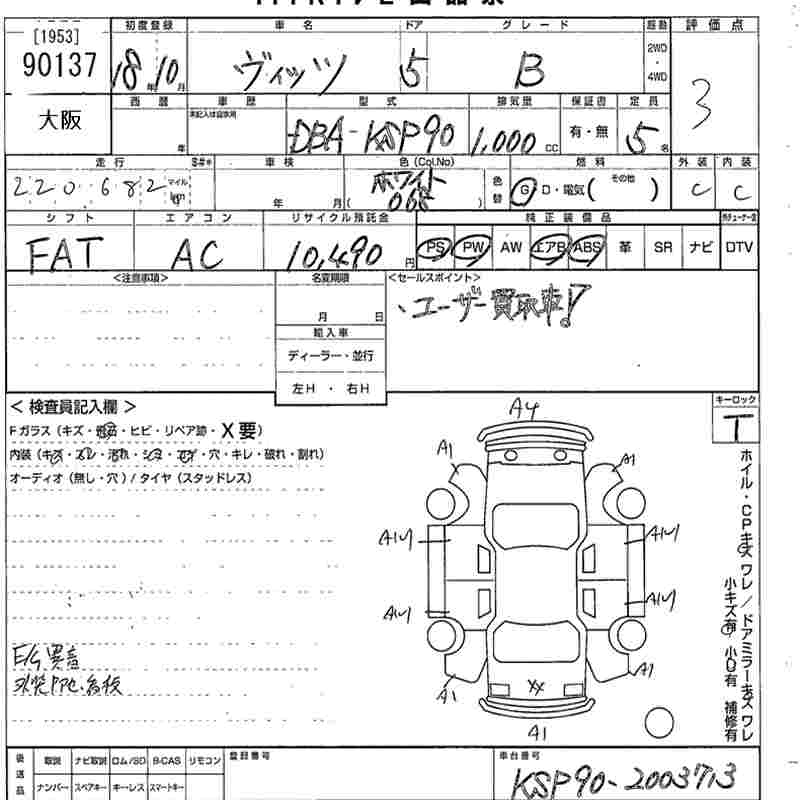 [1953]
90137
大阪
初度登録 車名 ドア グレード 駆動 評価点
18年10月 ヴィッツ 5 B 2WD・4WD 3
西暦 車歴 型式 排気量 保証書 定員
年 未記入は自家用 DBA-KSP90 1,000cc 有・無 5名
走行 S#* 車検 色(Col.No) 燃料 外装 内装
220,682 マイル km 年 月 ホワイト 068 色替 G・D・電気( その他 ) C C
シフト エアコン リサイクル預託金 純正装備品
FAT AC 10,490円 PS PW AW エアB ABS 革 SR ナビ DTV
<注意事項> 名変期限 <セールスポイント>
月 日
、ユーザー買取車!
輸入車
ディーラー・並行
左H ・ 右H
< 検査員記入欄 >
Fガラス(キズ・飛石・ヒビ・リペア跡・X要)
内装(キズ・スレ・汚れ・シミ・コゲ・穴・キレ・破れ・割れ)
オーディオ(無し・穴)/タイヤ(スタッドレス)
キーロック
T
A4
A1 A1
A1 A1
A1 A1
A1 A1
XX
A1
ホイル・CPキズ ワレ/ドアミラーキズ ワレ
小キズ有 小U有 補修有
E/G異音
後送品
取説 ナビ取説 ロム/SD B-CAS リモコン
ナンバー スペアキー キーレス スマートキー
登録番号 車台番号
KSP90-2003713